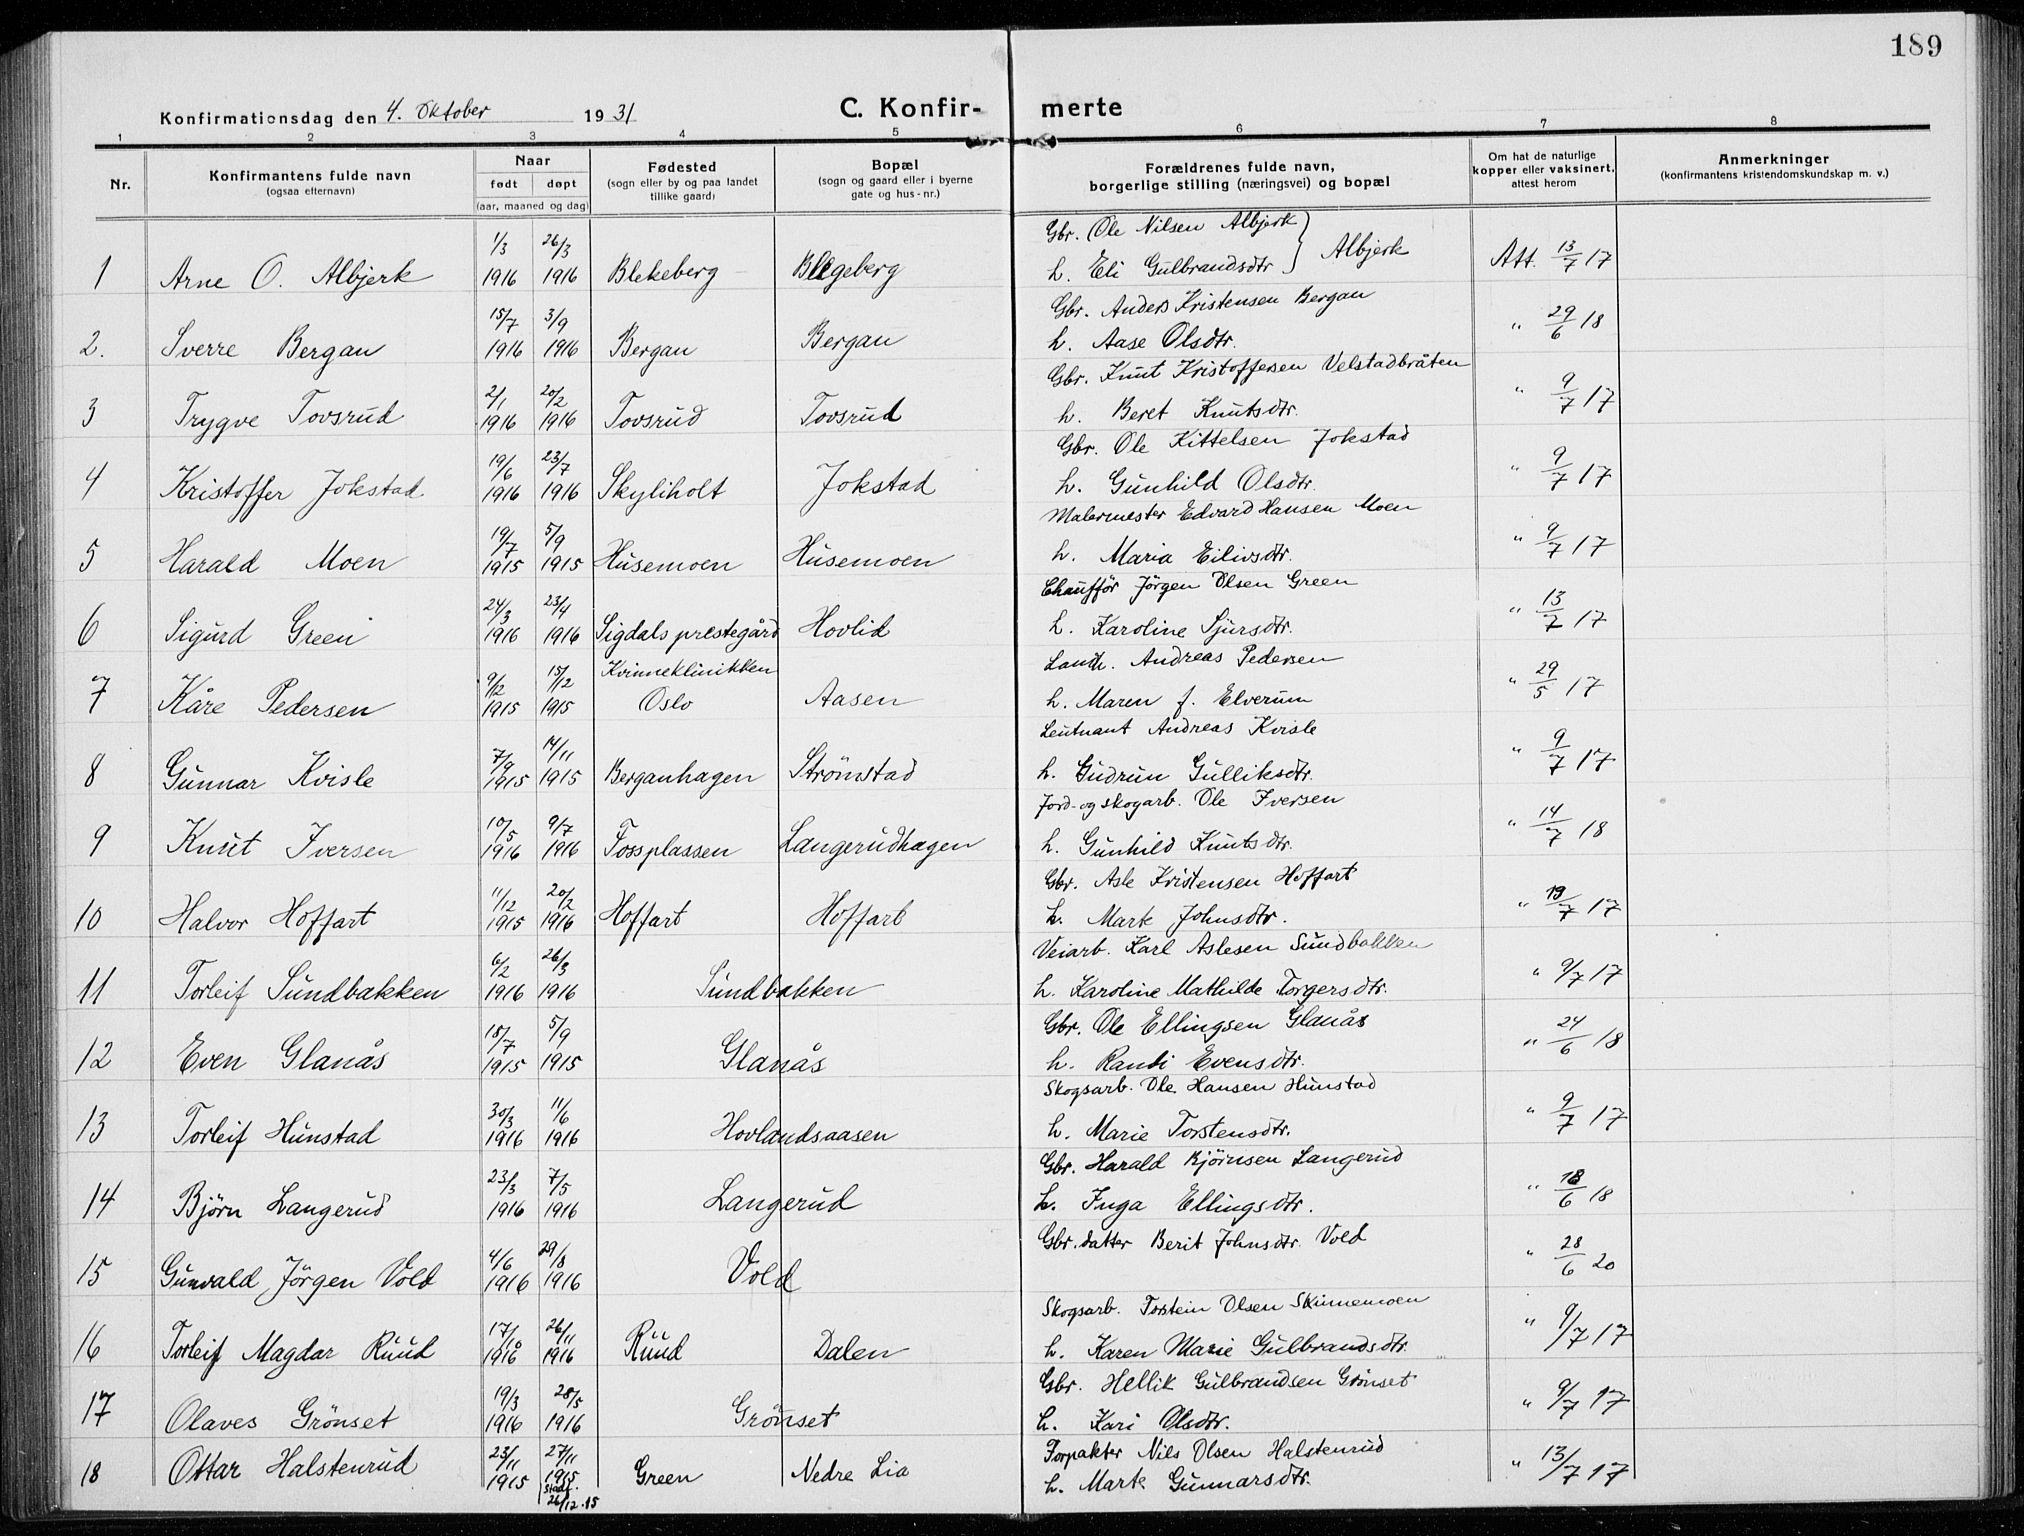 189
Konfirmationsdag den 4. Oktober 1931
C. Konfir- merte
1 2 3 4 5 6 7 8
Nr.
Konfirmantens fulde navn
(ogsaa efternavn)
Naar
født døpt
(aar, maaned og dag)
Fødested
(sogn eller by og paa landet
tillike gaard)
Bopæl
(sogn og gaard eller i byerne
gate og hus-nr.)
Forældrenes fulde navn,
borgerlige stilling (næringsvei) og bopæl
Om hat de naturlige
kopper eller vaksinert,
attest herom
Anmerkninger
(konfirmantens kristendomskundskap m. v.)
Gbr. Ole Nilsen Albjerk
1 Arne O. Albjerk 1/3 1916 26/3 1916 Blekeberg Blegeberg h. Eli Gulbrandsdtr } Albjerk Att. 13/7 17
Gbr. Anders Kristensen Bergan
2. Sverre Bergan 15/7 1916 3/9 1916 Bergan Bergan h. Aase Olsdtr. " 29/6 18
Gbr. Knut Kristoffersen Velstadbråten
3 Trygve Tovsrud 2/1 1916 20/2 1916 Tovsrud Tovsrud h. Beret Knutsdtr. " 9/7 17
Gbr. Ole Kittelsen Jokstad
4 Kristoffer Jokstad 19/6 1916 23/7 1916 Skyliholt Jokstad h. Gunhild Olsdtr. " 9/7 17
Malermester Edvard Hansen Moen
5 Harald Moen 19/7 1915 5/9 1915 Husemoen Husemoen h. Maria Eilivsdtr. " 9/7 17
Chauffør Jörgen Olsen Green
6 Sigurd Green 24/3 1916 23/4 1916 Sigdals prestegård Hovlid h. Karoline Sjursdtr. " 13/7 17
Landh. Andreas Pedersen
7 Kåre Pedersen 9/12 1915 15/12 1915 Kvinneklinikken Oslo Aasen h. Maren f. Elverum " 29/5 17
Leutnant Andreas Kvisle
8 Gunnar Kvisle 7/9 1915 14/11 1915 Berganhagen Strømstad h. Gudrun Gulliksdtr. " 9/7 17
Jord- og skogarb. Ole Iversen
9 Knut Iversen 10/5 1916 9/7 1916 Fossplassen Langerudhagen h. Gunhild Knutsdtr. " 14/7 18
Gbr. Asle Kristensen Hoffart
10 Halvor Hoffart 11/12 1915 20/2 1916 Hoffart Hoffart h. Marte Johnsdtr. " 19/7 17
Veiarb. Karl Aslesen Sundbakken
11 Torleif Sundbakken 6/2 1916 26/3 1916 Sundbakken h. Karoline Mathilde Torgersdtr. " 9/7 17
Gbr. Ole Ellingsen Glanås
12 Even Glanås 18/7 1915 5/9 1915 Glanås h. Randi Evensdtr. " 24/6 18
Skogsarb. Ole Hansen Hunstad
13 Torleif Hunstad 30/3 1916 11/6 1916 Hovlandsaasen h. Marie Torstensdtr. " 9/7 17
Gbr. Harald Bjørnsen Langerud
14 Björn Langerud 23/3 1916 7/5 1916 Langerud h. Inga Ellingsdtr. " 18/6 18
Gbr. datter Berit Johnsdtr. Vold
15 Gunvald Jörgen Vold 4/6 1916 29/8 1916 Vold " 28/6 20
Skogsarb. Torstein Olsen Skinnemoen
16 Torleif Magdar Ruud 17/10 1916 26/11 1916 Ruud Dalen h. Karen Marie Gulbrandsdtr. " 9/7 17
Gbr. Hellik Gulbrandsen Grönset
17 Olaves Grönset 19/3 1916 28/5 1916 Grönset h. Kari Olsdtr. " 9/7 17
Forpakter Nils Olsen Halstenrud
18 Ottar Halstenrud 23/11 1915 27/11 1915 stadf. 26/12.15 Green Nedre Lia h. Marte Gunnarsdtr. " 13/7 17